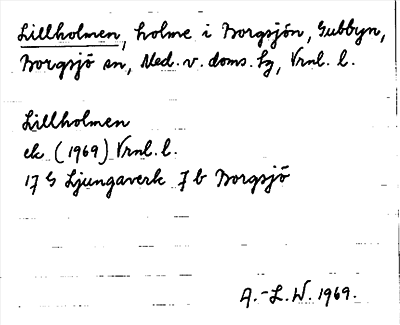 Lillholmen, holme i Borgsjön, Gubbyn,
Borgsjö sn, Med. v. doms. hg, Vrnl. l.
Lillholmen
ek (1969) Vrnl. l.
17 G Ljungaverk 7 b Borgsjö
A.-L.W. 1969.